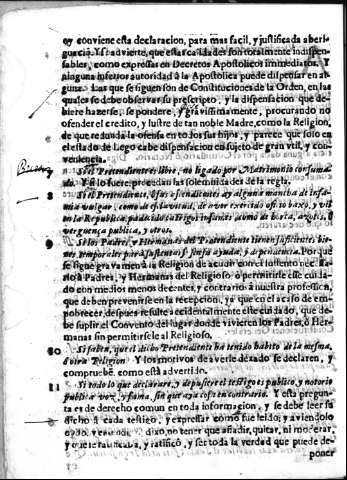 oy conviene esta declaracion, para mas facil, y justificada averi-
guacia. Y si advierte, que estas calidades son totalmente indispen-
sables, como expressas en Decretos Apostolicos immediatos. Y
ninguna inferior autoridad à la Apostolica puede dispensar en al-
guna. Las que se siguen son de Constituciones de la Orden, en las
quales se debe observar su prescripto, y la dispensacion que de-
biere hazerse, se pondere, y gravissimamente, procurando no
ofender el credito, y lustre de tan noble Madre, como la Religion,
de que redunda la ofensa en todos sus hijos, y parece que solo en
el estado de Lego cabe dispensacion en sujeto de gran vtil, y con-
veniencia.
Si el Pretendiente es libre, no ligado por Matrimonio consuma-
do. Y si lo fuere, procedan las solemnidades de la regla.
Si el Pretendiente, ò sus ascendientes ay alguna mancha de infa-
mia vulgar, como de esclavitud, de aver exercido oficio baxo, y vil
en la Republica padecido castigos infames como de horca, azotes, ò
verguença publica, y otros.
9 Si los Padres, y Hermanas del Pretendiente tienen suficientes bie-
nes temporales para sustentarse sin su ayuda, y dependencia. Porque
se sigue gravamen à la Religion de acudir con el sustento nec
rio à Padres, y Hermanas del Religioso ò permitirle esse cuida-
do con medios menos decentes, y contrario à nuestra profession,
que deben prevenirse en la recepcion, ya que en el acaso de em-
pobrecer, despues resulte accidentalmente esse cuidado, que de-
be suplir el Convento del lugar donde vivieren los Padres, ò Her-
manas sin permitirsele al Religioso.
10 Si saben, que el dicho Pretendiente ha tenido habito de la mesma,
ò otra Religion. Y los motivos de averle dexado se declaren, y
compruebẽ, como està advertido.
11 Si todo lo que declarare, y depusiere el testigo es publico, y notorio
publica voz, y fama, sin que aya cosa en contrario. Y esta pregun-
ta es de derecho comun en toda informacion, y se debe leer su
dicho à cada testigo, y expressar como fue leido, y aviendolo
oydo, y entendido, dixo, no tener que añadir, quitar, ni moderar,
y que se ratificaba, y ratificò, y ser toda la verdad que puede de-
poner